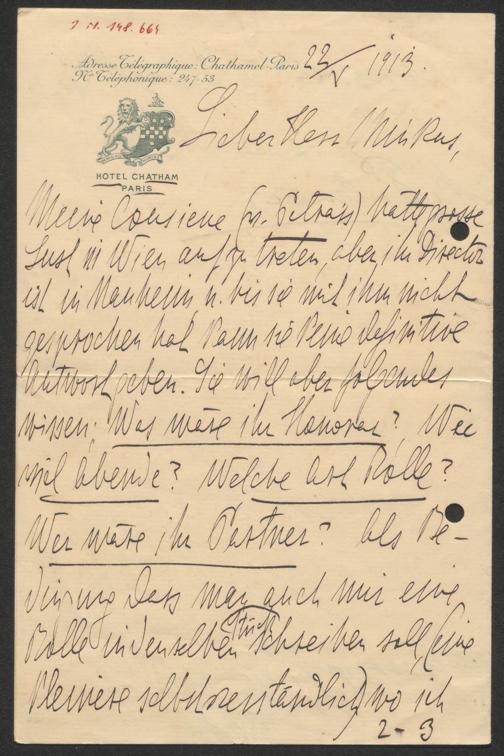 J. N. 148.664
Adresse Télégraphique: Chathamol-Paris
No Téléphonique: 247-53
22/X 1913.
HOTEL CHATHAM
PARIS
Lieber Herr Minkus,
Meine Cousiene (v. Petráss) hatt grosse
Lust in Wien aufzutreten, aber ihr Director
ist in Manheim u. bis sie mit ihm nicht
gesprochen hat kann sie keine definitive
Antwort geben. Sie will aber folgendes
wissen; Was wäre ihr Honorar? Wie
viel Abende? Welche Art Rolle?
Wer wäre ihr Partner? Als Be-
dingung dass man auch mir eine
Rolle in denselben Stück schreiben soll, (eine
kleinere selbstverständlich) wo ich
2-3